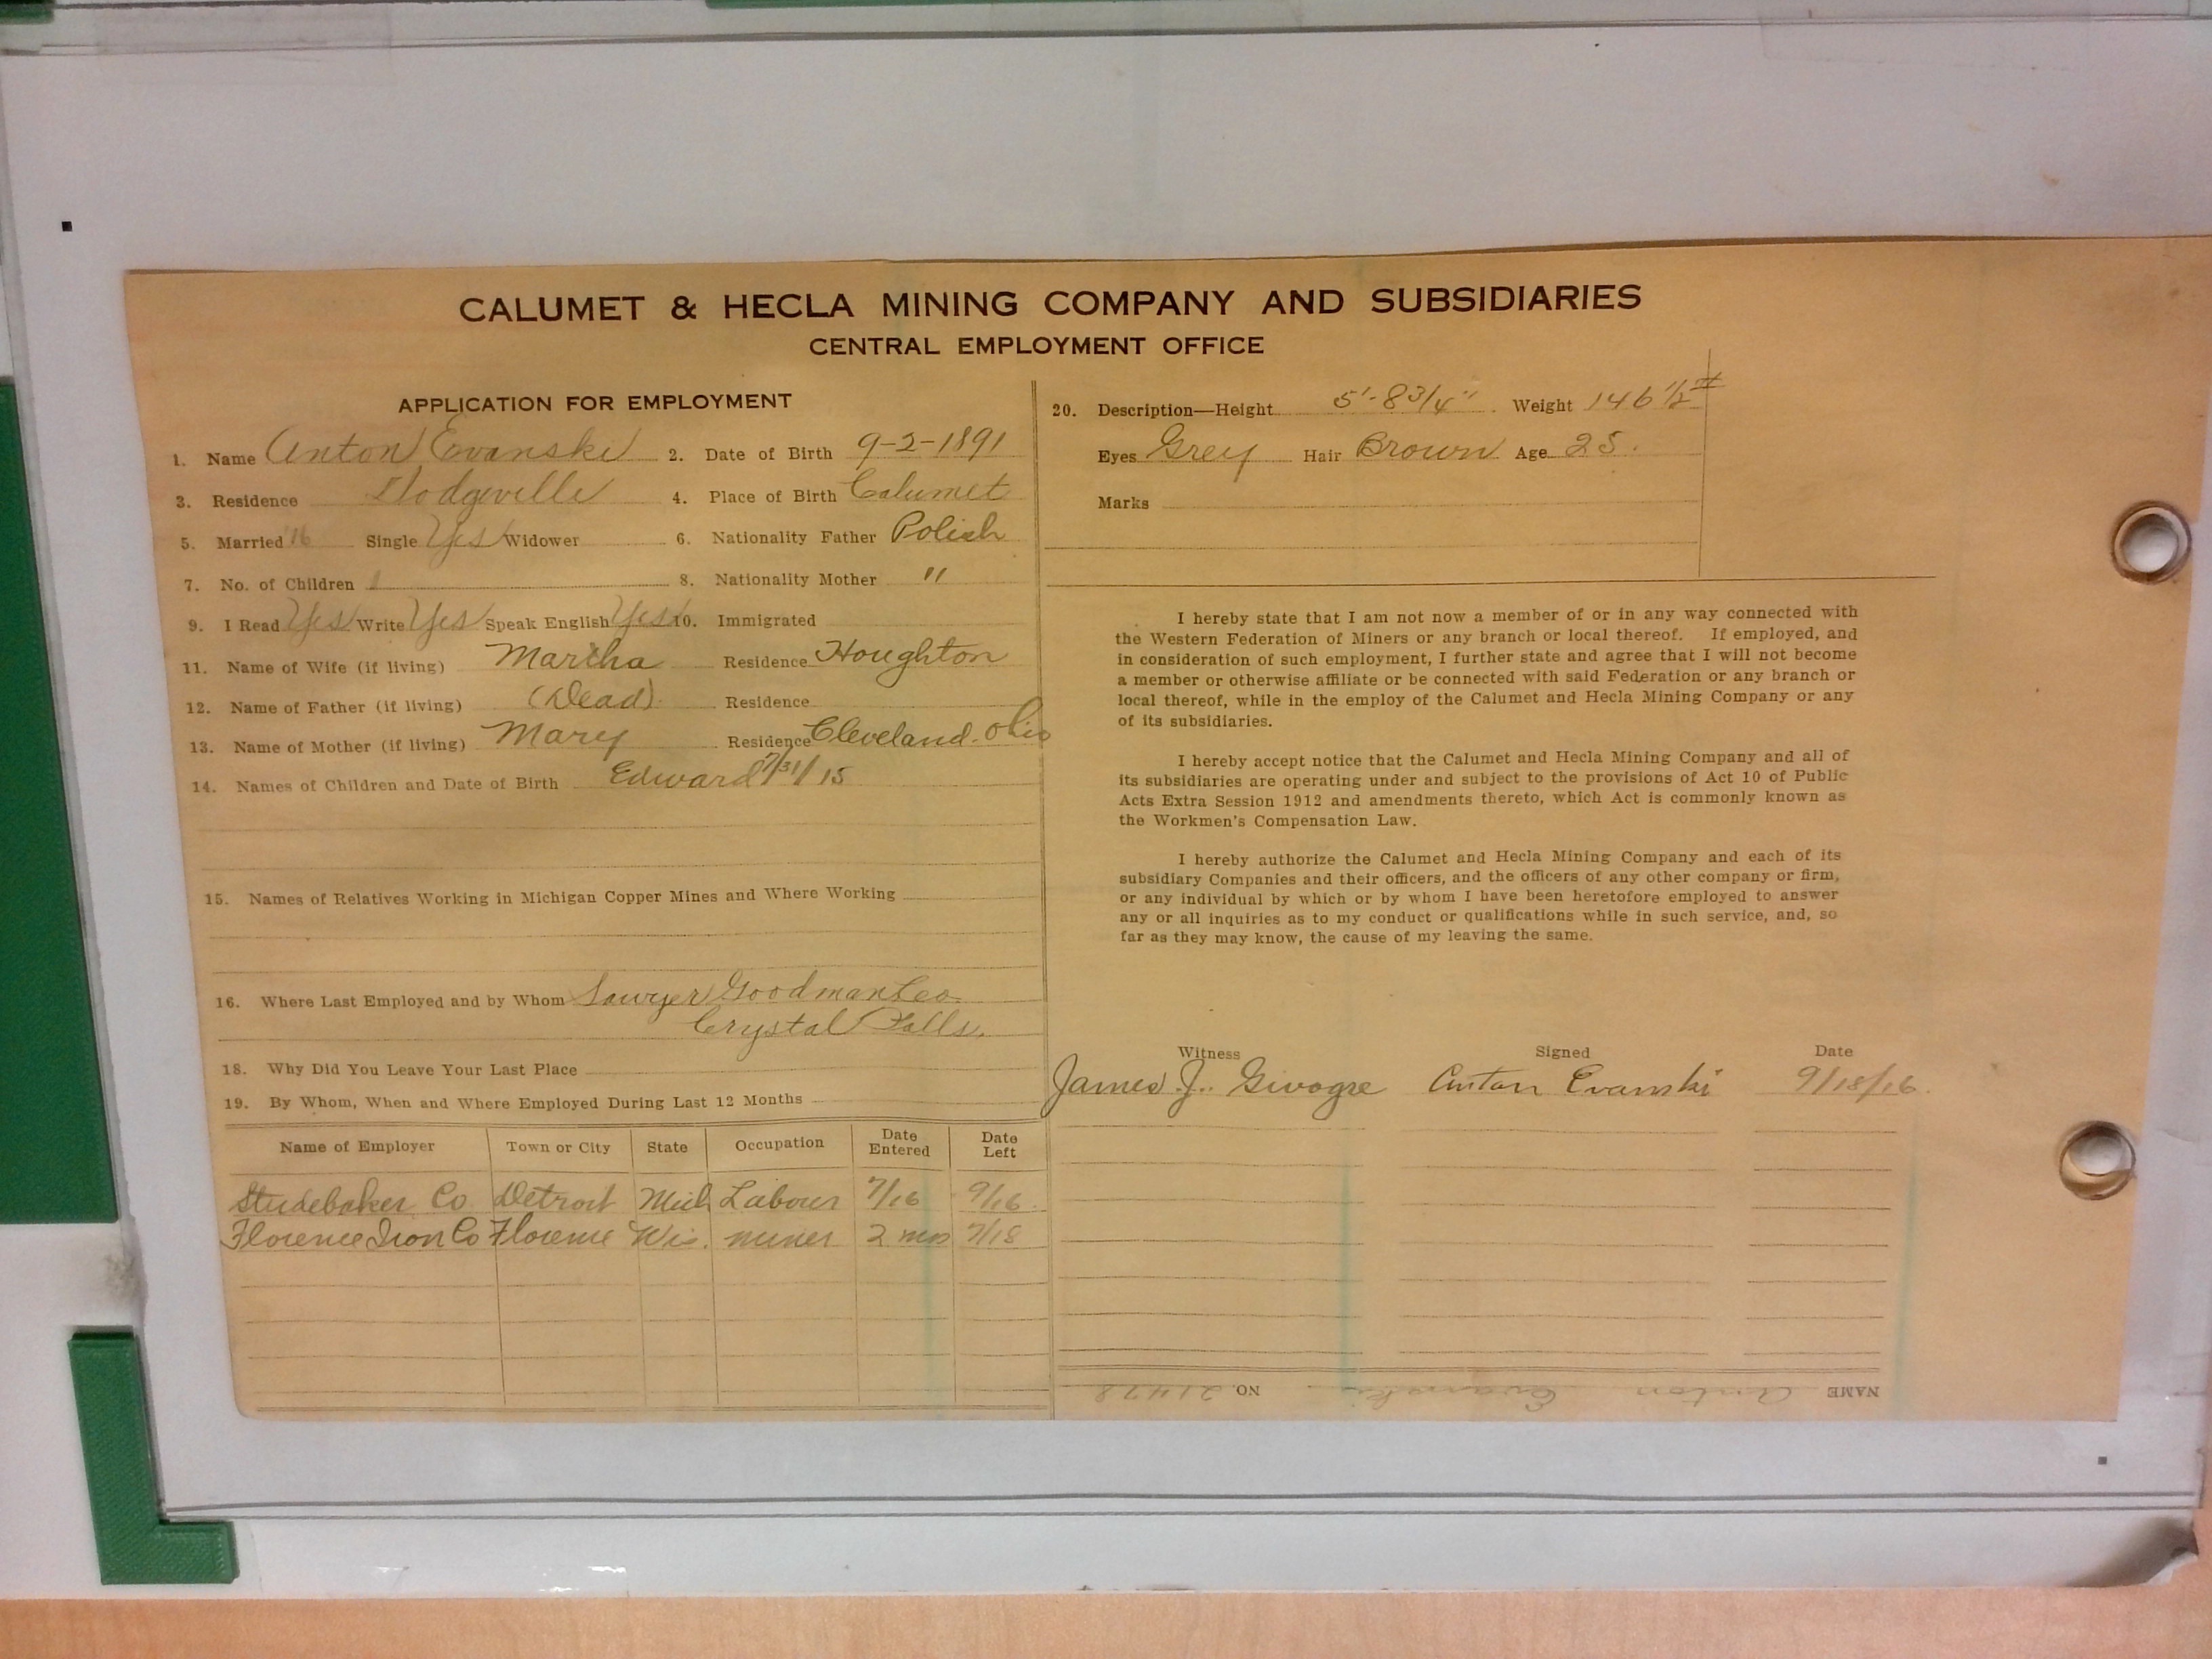 CALUMET & HECLA MINING COMPANY AND SUBSIDIARIES
CENTRAL EMPLOYMENT OFFICE
APPLICATION FOR EMPLOYMENT
1. Name Anton Evanski 2. Date of Birth 9-2-1891
3. Residence Dodgeville 4. Place of Birth Calumet
5. Married Single Yes Widower 6. Nationality Father Polish
7. No. of Children 1 8. Nationality Mother "
9. I Read Yes Write Yes Speak English Yes 10. Immigrated
11. Name of Wife (if living) Martha Residence Houghton
12. Name of Father (if living) (Dead) Residence
13. Name of Mother (if living) Mary Residence Cleveland. Ohio
14. Names of Children and Date of Birth Edward 7/31/15
15. Names of Relatives Working in Michigan Copper Mines and Where Working
16. Where Last Employed and by Whom Sawyer Goodman Co.
Crystal Falls.
18. Why Did You Leave Your Last Place
19. By Whom, When and Where Employed During Last 12 Months
Name of Employer Town or City State Occupation Date Entered Date Left
Studebaker Co Detroit Mich Labour 7/16 9/16.
Florence Iron Co Florence Wis. miner 2 mos 7/18
20. Description—Height 5'-8 3/4" Weight 146 1/2 #
Eyes Grey Hair Brown Age 25.
Marks
I hereby state that I am not now a member of or in any way connected with
the Western Federation of Miners or any branch or local thereof. If employed, and
in consideration of such employment, I further state and agree that I will not become
a member or otherwise affiliate or be connected with said Federation or any branch or
local thereof, while in the employ of the Calumet and Hecla Mining Company or any
of its subsidiaries.
I hereby accept notice that the Calumet and Hecla Mining Company and all of
its subsidiaries are operating under and subject to the provisions of Act 10 of Public
Acts Extra Session 1912 and amendments thereto, which Act is commonly known as
the Workmen's Compensation Law.
I hereby authorize the Calumet and Hecla Mining Company and each of its
subsidiary Companies and their officers, and the officers of any other company or firm,
or any individual by which or by whom I have been heretofore employed to answer
any or all inquiries as to my conduct or qualifications while in such service, and, so
far as they may know, the cause of my leaving the same.
Witness Signed Date
James J. Anton Evanski 9/18/16.
NAME Anton Evanski NO. 21478